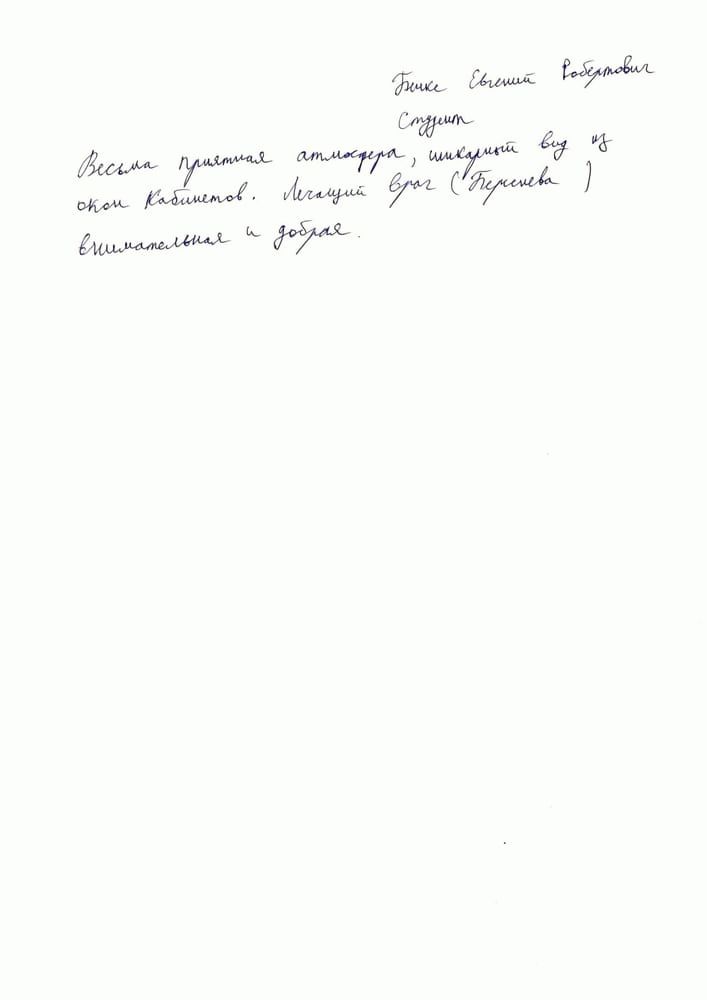 Евгений Робертович
Студент
Весьма приятная атмосфера, шикарный вид из
окон кабинетов. Лечащий врач ( )
внимательная и добрая.